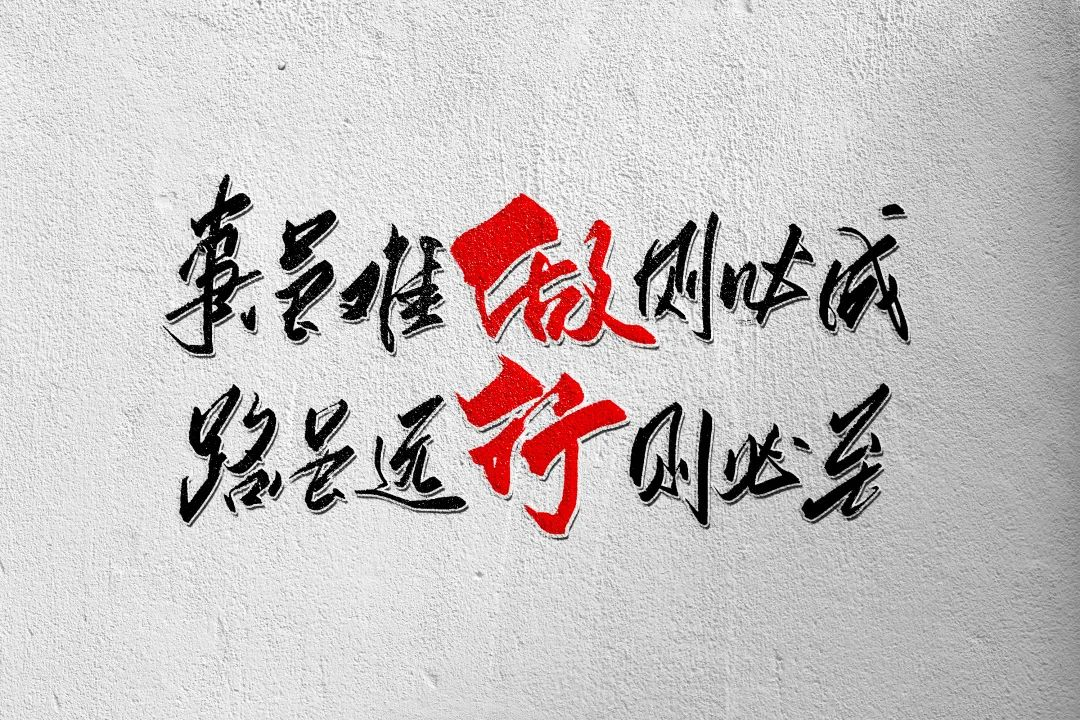 事虽难做则必成
路虽远行则必至